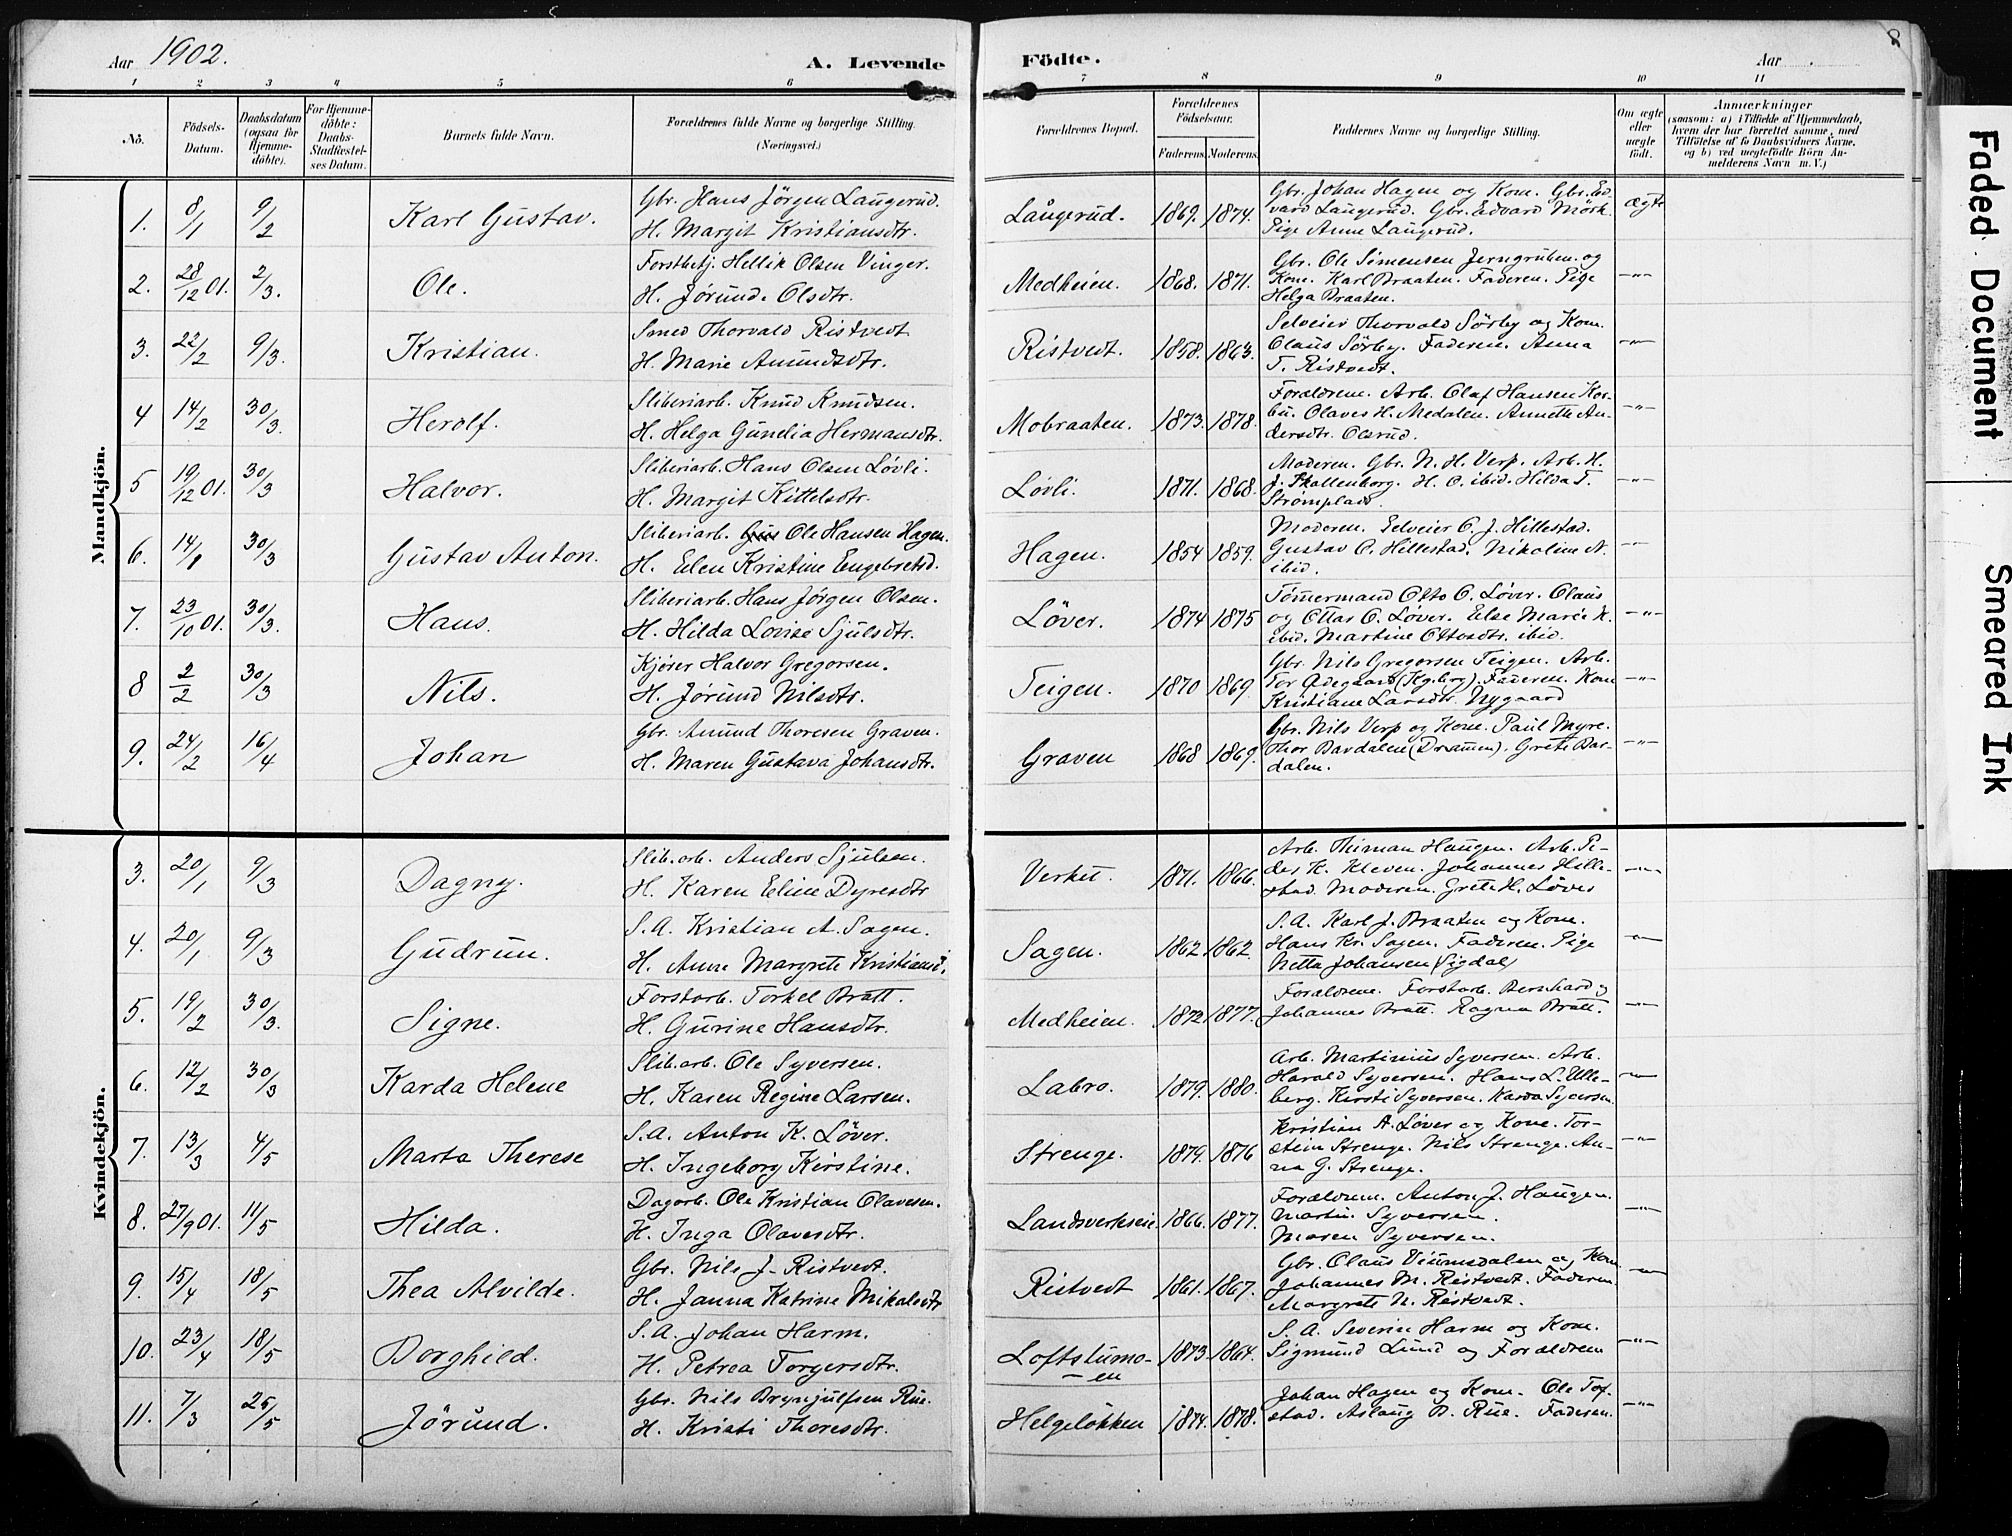 Aar 1902. A. Levende Födte. Aar . 8
1 2 3 4 5 6 7 8 9 10 11
No. Födsels-Datum. Daabsdatum (ogsaa for Hjemme-döbte). For Hjemme-döbte: Daabs-Stadfæstel-ses Datum. Barnets fulde Navn. Forældrenes fulde Navne og borgerlige Stilling. (Næringsvei.) Forældrenes Bopæl. Forældrenes Födselsaar. Faderens. Moderens. Faddernes Navne og borgerlige Stilling. Om ægte eller uægte födt. Anmærkninger (saasom: a) i Tilfælde af Hjemmedaab, hvem der har forrettet samme, med Tilföielse af to Daabsvidners Navne, og b) ved uægtefödte Börn An-melderens Navn m. V.)
Mandkjön.
1. 8/1 9/2 Karl Gustav. Gbr. Hans Jörgen Laugerud. H. Margit Kristiansdtr. Laugerud. 1869. 1874. Gbr. Johan Hagen og Kone. Gbr. Ed-vard Laugerud. Gbr. Edvard Mörk. Pige Anne Laugerud. ægte
2. 28/12 01. 2/3. Ole. Forstbetj. Hellik Olsen Vinger. H. Jørund Olsdtr. Medheien. 1868. 1871. Gbr. Ole Simensen Jerngruben og Kone. Karl Braaten. Faderen. Pige Helga Braaten. -"-
3. 22/2 9/3. Kristian. Smed Thorvald Ristvedt H. Marie Amundsdtr. Ristvedt. 1858. 1863. Selveier Thorvald Sörby og Kone. Olaus Sörby. Faderen. Anna T. Ristvedt. -"-
4 14/2 30/3. Herolf. Sliberiarb. Knud Knudsen. H. Helga Gundia Hermansdtr. Mobraaten. 1873. 1878. Forældrene. Arb. Olaf Hansen Kor-bu. Olaves H. Medalen. Annette An-dersdtr. Olsrud. -"-
5 19/12 01. 30/3 Halvor. Sliberiarb. Hans Olsen Løvli. H. Margit Kittelsdtr. Løvli. 1871. 1868. Moderen. Gbr. N. H. Verp. Arb. H. J. Skallenborg. H. O. ibid. Hilda T. Strømplads. -"-
6. 14/1 30/3 Gustav Anton. Sliberiarb. Ole Hansen Hagen. H. Elen Kristine Engebretsd. Hagen. 1854 1859. Moderen. Selveier O. J. Hillestad. Gustav O. Hillestad. Nikoline N. ibid. -"-
7. 23/10 01. 30/3. Hans. Sliberiarb. Hans Jørgen Olsen. H. Hilda Lovise Sjulsdtr. Løver. 1874 1875 Tømmermand Otto O. Løver. Olaus og Ottar O. Løver. Else Marie K. ibid. Martine Ottosdtr. ibid. -"-
8 2/2 30/3 Nils. Kjører Halvor Gregorsen. H. Jørund Nilsdtr. Teigen. 1870 1869 Gbr. Nils Gregorsen Teigen. Arb. Tor Ødegaard (Kgsberg). Faderen. Kone Kristiane Larsdtr. Nygaard -"-
9. 24/2 16/4 Johan Gbr. Amund Thoresen Graven. H. Maren Gustava Johansdtr. Graven 1868 1869. Gbr. Nils Verp og Kone. Paul Myre. Thor Bardalen (Drammen). Grete Bar-dalen. -"-
Kvindekjön.
3. 20/1 9/3 Dagny. Slib.arb. Anders Sjulsen. H. Karen Eline Dyresdtr Verket. 1871. 1866. Arb. Thiman Haugen. Arb. Pe-der K. Kleven. Johannes Hille-stad. Moderen. Grete H. Løver -"-
4. 20/1 9/3 Gudrun. S.A. Kristian A. Sagen. H. Anne Margrete Kristiansd. Sagen. 1862. 1862. S.A. Karl J. Braaten og Kone. Hans Kr. Sagen. Faderen. Pige Netta Johansen (Sigdal) -"-
5. 19/2 30/3. Signe. Forstarb. Torkel Bratt. H. Gurine Hansdtr. Medheien. 1872 1877. Forældrene. Forstarb. Bernhard og Johannes Bratt. Ragna Bratt. -"-
6. 12/2 30/3 Karda Helene Slib.arb. Ole Syversen. H. Karen Regine Larsen. Labro. 1879. 1880. Arb. Martinius Syversen. Arb. Harald Syversen. Hans L. Ulle-berg. Kirsti Syversen. Karda Syversen. -"-
7. 13/3 4/5 Marta Therese S.A. Anton K. Løver. H. Ingeborg Kirstine. Strenge. 1879. 1876 Kristian A. Løver og Kone. Tor-stein Strenge. Nils Strenge. An-na G. Strenge. -"-
8. 27/9 01. 11/5 Hilda. Dagarb. Ole Kristian Olavesen. H. Inga Olavesdtr. Landsverkseie. 1866. 1877. Forældrene. Anton J. Haugen. Martin Syversen. Maren Syversen. -"-
9. 15/4 18/5 Thea Alvilde. Gbr. Nils J. Ristvedt. H. Janna Katrine Mikalsdtr Ristvedt 1861. 1867. Gbr. Olaus Viumsdalen og Kone Johannes M. Ristvedt. Faderen. Margrete N. Ristvedt. -"-
10. 23/4 18/5 Borghild. S.A. Johan Harm. H. Petrea Torgersdtr. Loftstumo-en 1873. 1864. S.A. Severin Harm og Kone. Sigmund Lund og Forældrene -"-
11. 7/3 25/5 Jörund. Gbr. Nils Brynjulfsen Rue. H. Kristi Thoresdtr. Helgeløkken 1874. 1878. Johan Hagen og Kone. Ole Tof-stad. Aslaug B. Rue. Faderen. -"-
Faded Document
Smeared Ink